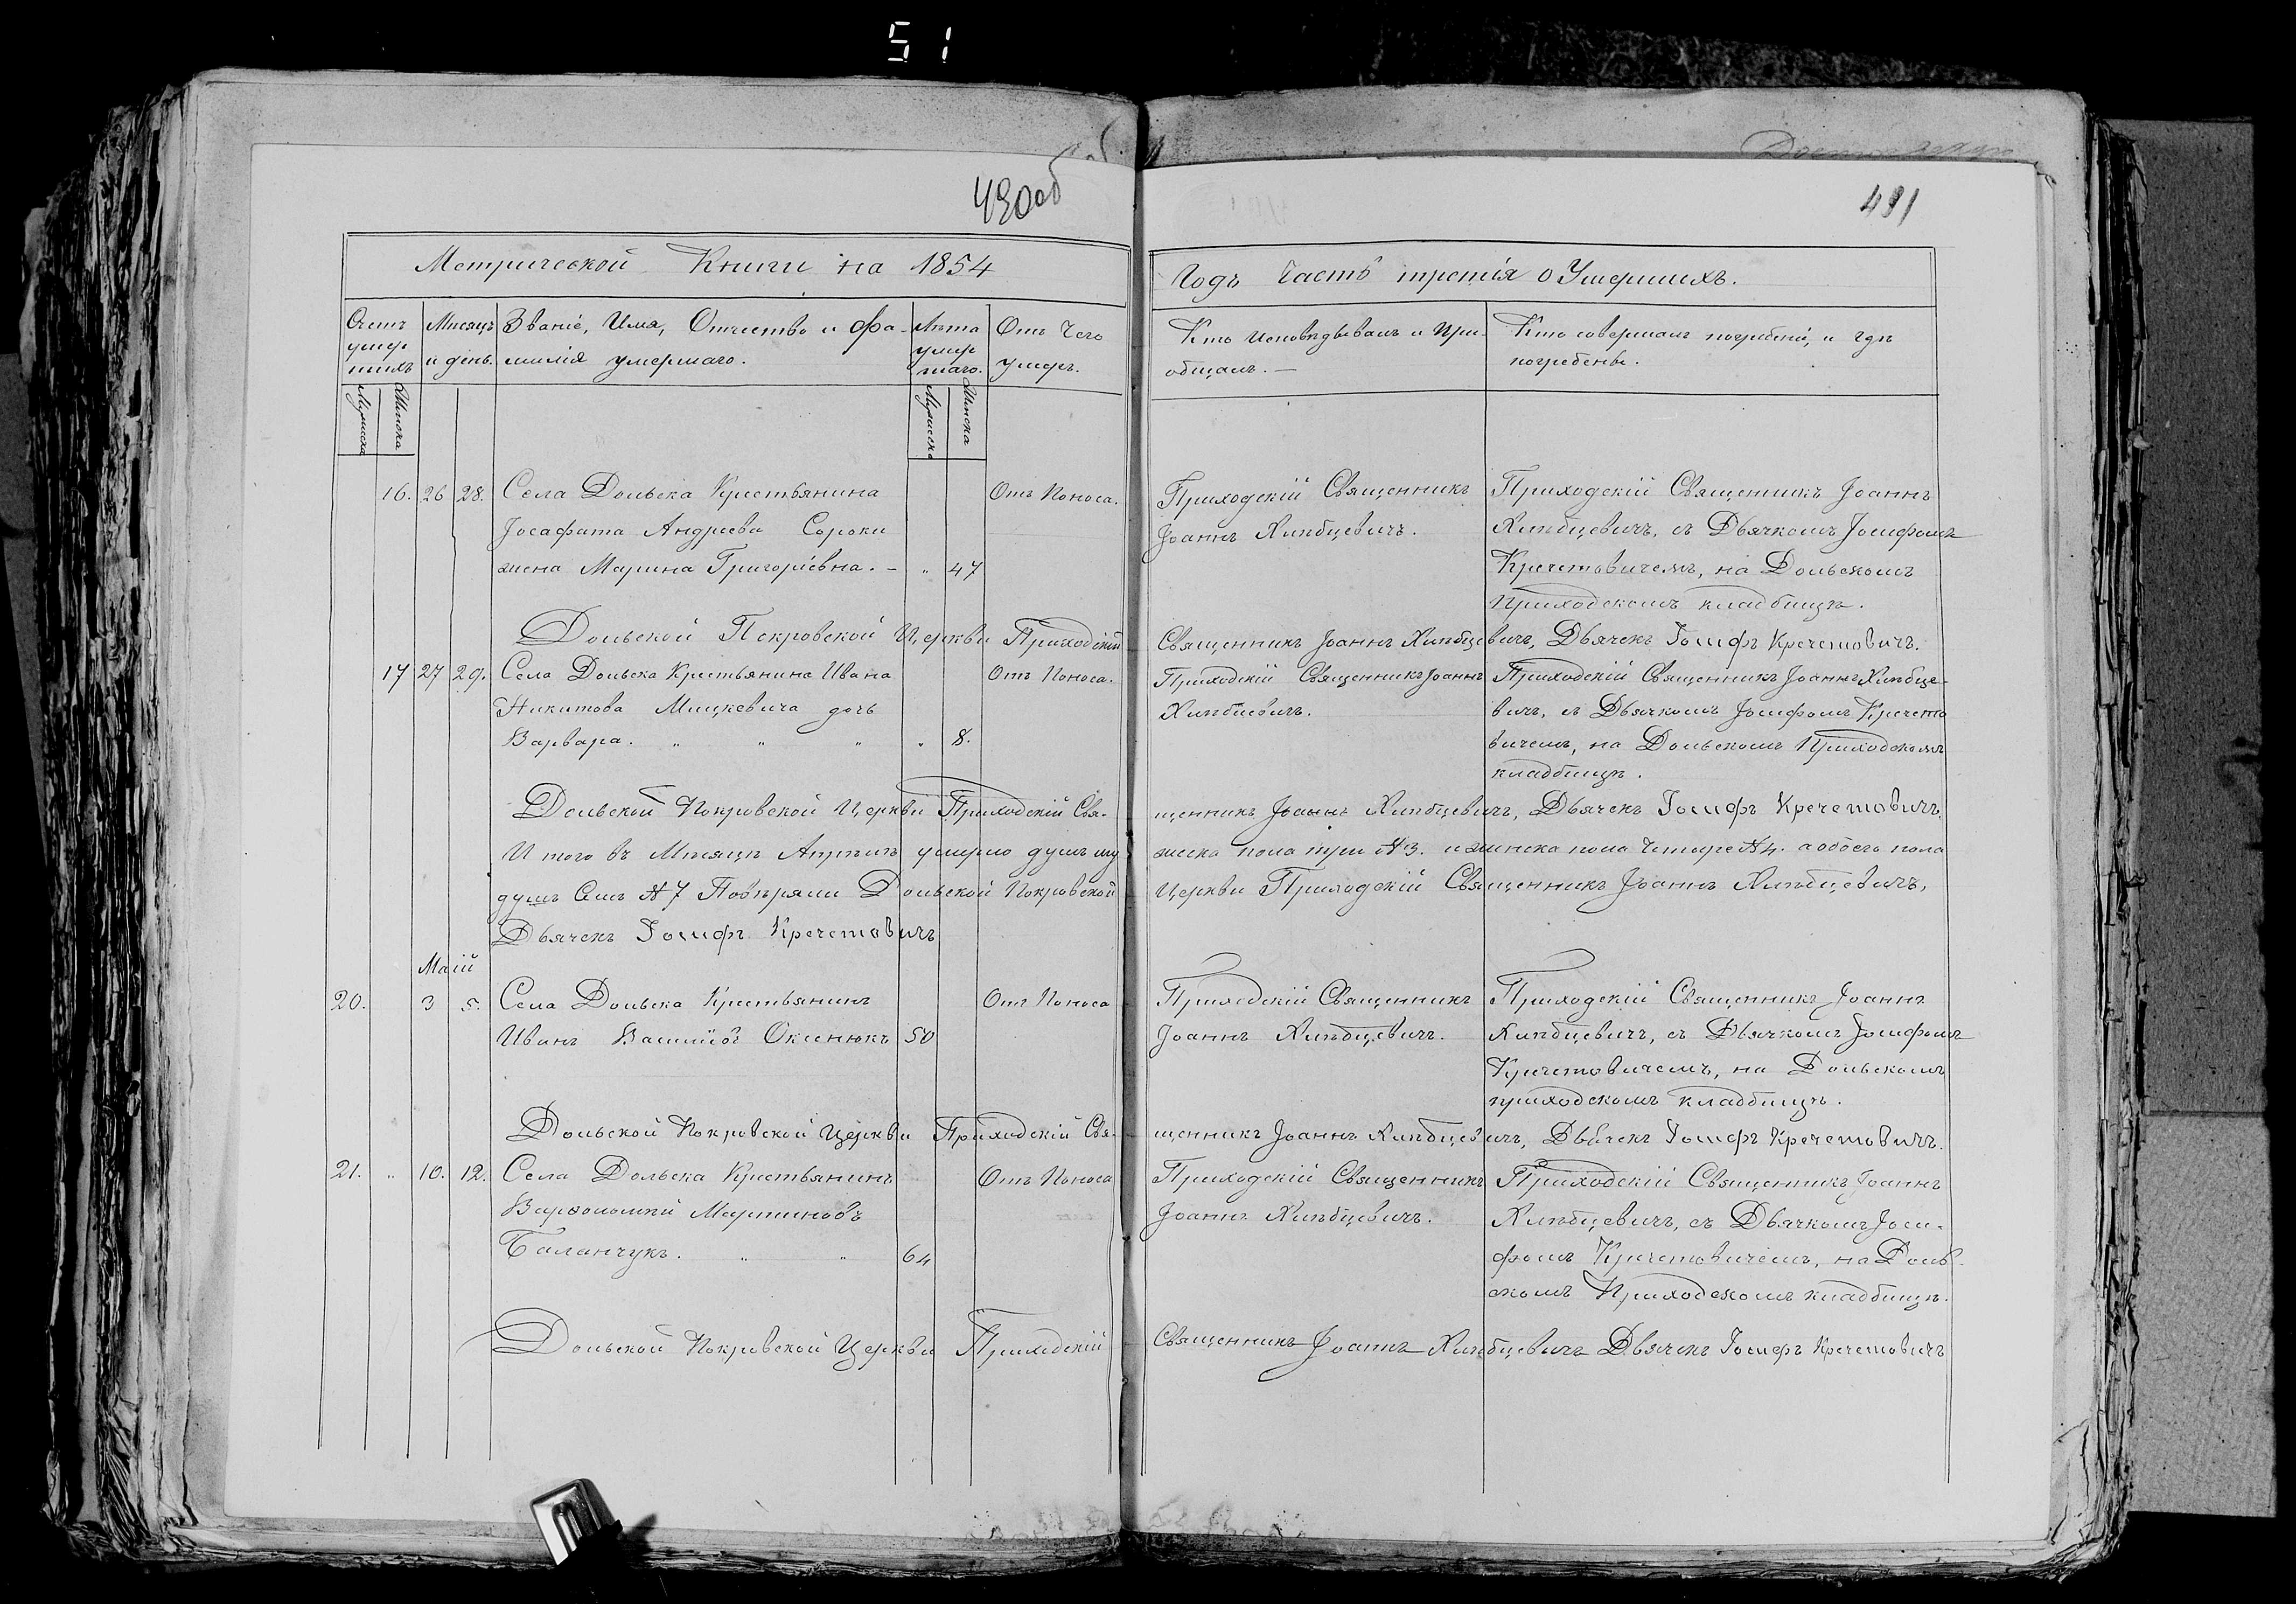 51
490об
491
Метрической Книги на 1854
Годъ Часть третія о Умершихъ.
Счетъ умер шихъ
Мужеска
Женска
Мѣсяцъ и день.
Званіе, Имя, Отчество и Фа-
милія умершаго.
Лѣта умер шаго.
Мужеска
Женска
Отъ Чего умеръ.
Кто Исповѣдывалъ и Прі-
общалъ. —
Кто совершалъ погребеніе, и гдѣ
погребены.
16. 26 28. Села Дольска Крестьянина
Іосафата Андреева Сороки
жена Марина Григоріевна. — " 47
Отъ Поноса.
Приходскій Священникъ
Іоаннъ Хлѣбцевичъ.
Приходскій Священникъ Іоаннъ
Хлѣбцевичъ, съ Дьячкомъ Іосифомъ
Кречетовичемъ, на Дольскомъ
Приходскомъ кладбищѣ.
Дольской Покровской Церкви Приходскій Священникъ Іоаннъ Хлѣбцевичъ, Дьячекъ Іосифъ Кречетовичъ.
17 27 29. Села Дольска Крестьянина Ивана
Никитова Мицкевича дочь
Варвара. " " " " 8.
Отъ Поноса.
Приходскій Священникъ Іоаннъ
Хлѣбцевичъ.
Приходскій Священникъ Іоаннъ Хлѣбце-
вичъ, съ Дьячкомъ Іосифомъ Кречето
вичемъ, на Дольскомъ Приходскомъ
кладбищѣ.
Дольской Покровской Церкви Приходскій Свя- щенникъ Іоаннъ Хлѣбцевичъ, Дьячекъ Іосифъ Кречетовичъ.
И того въ Мѣсяцѣ Апрѣлѣ умерло душъ му жеска пола три № 3. и женска пола Четыре № 4. а обоего пола
душъ Семь № 7 Повѣряли Дольской Покровской Церкви Приходскій Священникъ Іоаннъ Хлѣбцевичъ,
Дьячекъ Іосифъ Кречетовичъ
Маій
20. 3 5. Села Дольска Крестьянинъ
Иванъ Васильевъ Оксенюкъ 50
Отъ Поноса
Приходскій Священникъ
Іоаннъ Хлѣбцевичъ.
Приходскій Священникъ Іоаннъ
Хлѣбцевичъ, съ Дьячкомъ Іосифомъ
Кречетовичемъ, на Дольскомъ
приходскомъ кладбищѣ.
Дольской Покровской Церкви Приходскій Свя- щенникъ Іоаннъ Хлѣбцевичъ, Дьячекъ Іосифъ Кречетовичъ.
21. " 10. 12. Села Дольска Крестьянинъ
Варфоломей Мартиновъ
Баланчукъ. " " 64
Отъ Поноса
Приходскій Священникъ
Іоаннъ Хлѣбцевичъ.
Приходскій Священникъ Іоаннъ
Хлѣбцевичъ, съ Дьячкомъ Іоси-
фомъ Кречетовичемъ, на Доль-
скомъ Приходскомъ кладбищѣ.
Дольской Покровской Церкви Приходскій Священникъ Іоаннъ Хлѣбцевичъ Дьячекъ Іосифъ Кречетовичъ